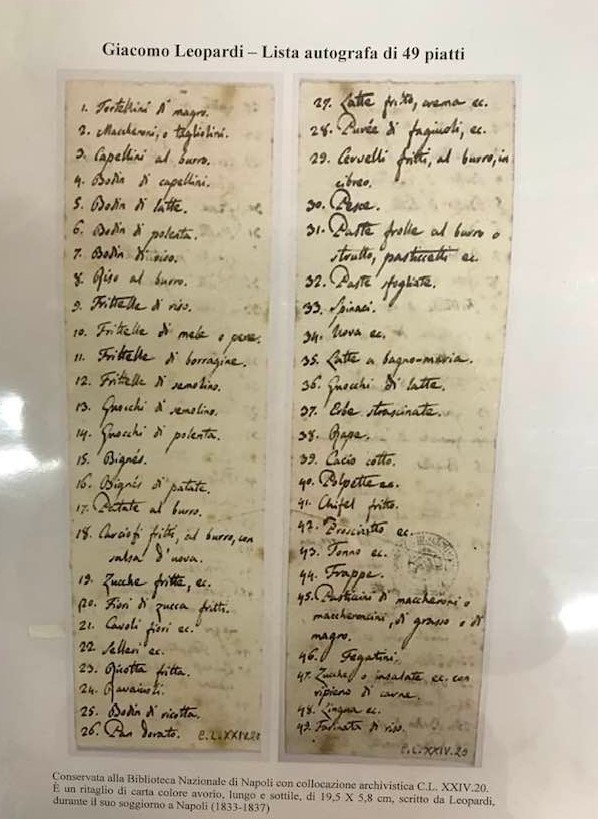 Giacomo Leopardi – Lista autografa di 49 piatti
1. Tortellini di magro.
2. Maccheroni, o tagliolini.
3. Capellini al burro.
4. Bodin di capellini.
5. Bodin di latte.
6. Bodin di polenta.
7. Bodin di riso.
8. Riso al burro.
9. Frittelle di riso.
10. Frittelle di mele o pere.
11. Frittelle di borragine.
12. Frittelle di semolino.
13. Gnocchi di semolino.
14. Gnocchi di polenta.
15. Bignés.
16. Bignés di patate.
17. Patate al burro.
18. Carciofi fritti, al burro, con
salsa d'uova.
19. Zucche fritte, ec.
20. Fiori di zucca fritti.
21. Cavoli fiori ec.
22. Selleri ec.
23. Ricotta fritta.
24. Ravaiuoli.
25. Bodin di ricotta.
26. Pan dorato.
C.L.XXIV.20
27. Latte fritto, crema ec.
28. Purée di fagiuoli, ec.
29. Cervelli fritti, al burro, in
cibreo.
30. Pesce.
31. Paste frolle al burro o
strutto, pasticcetti ec.
32. Paste sfogliate.
33. Spinaci.
34. Uova ec.
35. Latte a bagno-maria.
36. Gnocchi di latte.
37. Erbe strascinate.
38. Rape.
39. Cacio cotto.
40. Polpette ec.
41. Chifel fritto.
42. Prosciutto ec.
43. Tonno ec.
44. Frappe.
45. Pasticcini di maccheroni o
maccheroncini, di grasso o di
magro.
46. Fegatini.
47. Zucche o insalate ec. con
ripieno di carne.
48. Lingua ec.
49. Farinata di riso.
C.L.XXIV.20
Conservata alla Biblioteca Nazionale di Napoli con collocazione archivistica C.L. XXIV.20.
È un ritaglio di carta colore avorio, lungo e sottile, di 19,5 X 5,8 cm, scritto da Leopardi,
durante il suo soggiorno a Napoli (1833-1837)